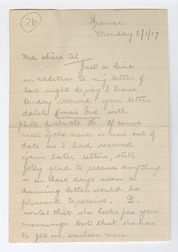 France
Monday 8/1/17
Just a line
in addition to my letter of
last night to say I have
to-day received your letter
dated Xmas Eve with
photo
most of the news is now out of
date as I had received
your later letters, still
jolly glad to receive anything
in these days even a
dunning letter would be
pleasant to receive. I
notice that she looks for your
mornings but that she has
to go on earlier now